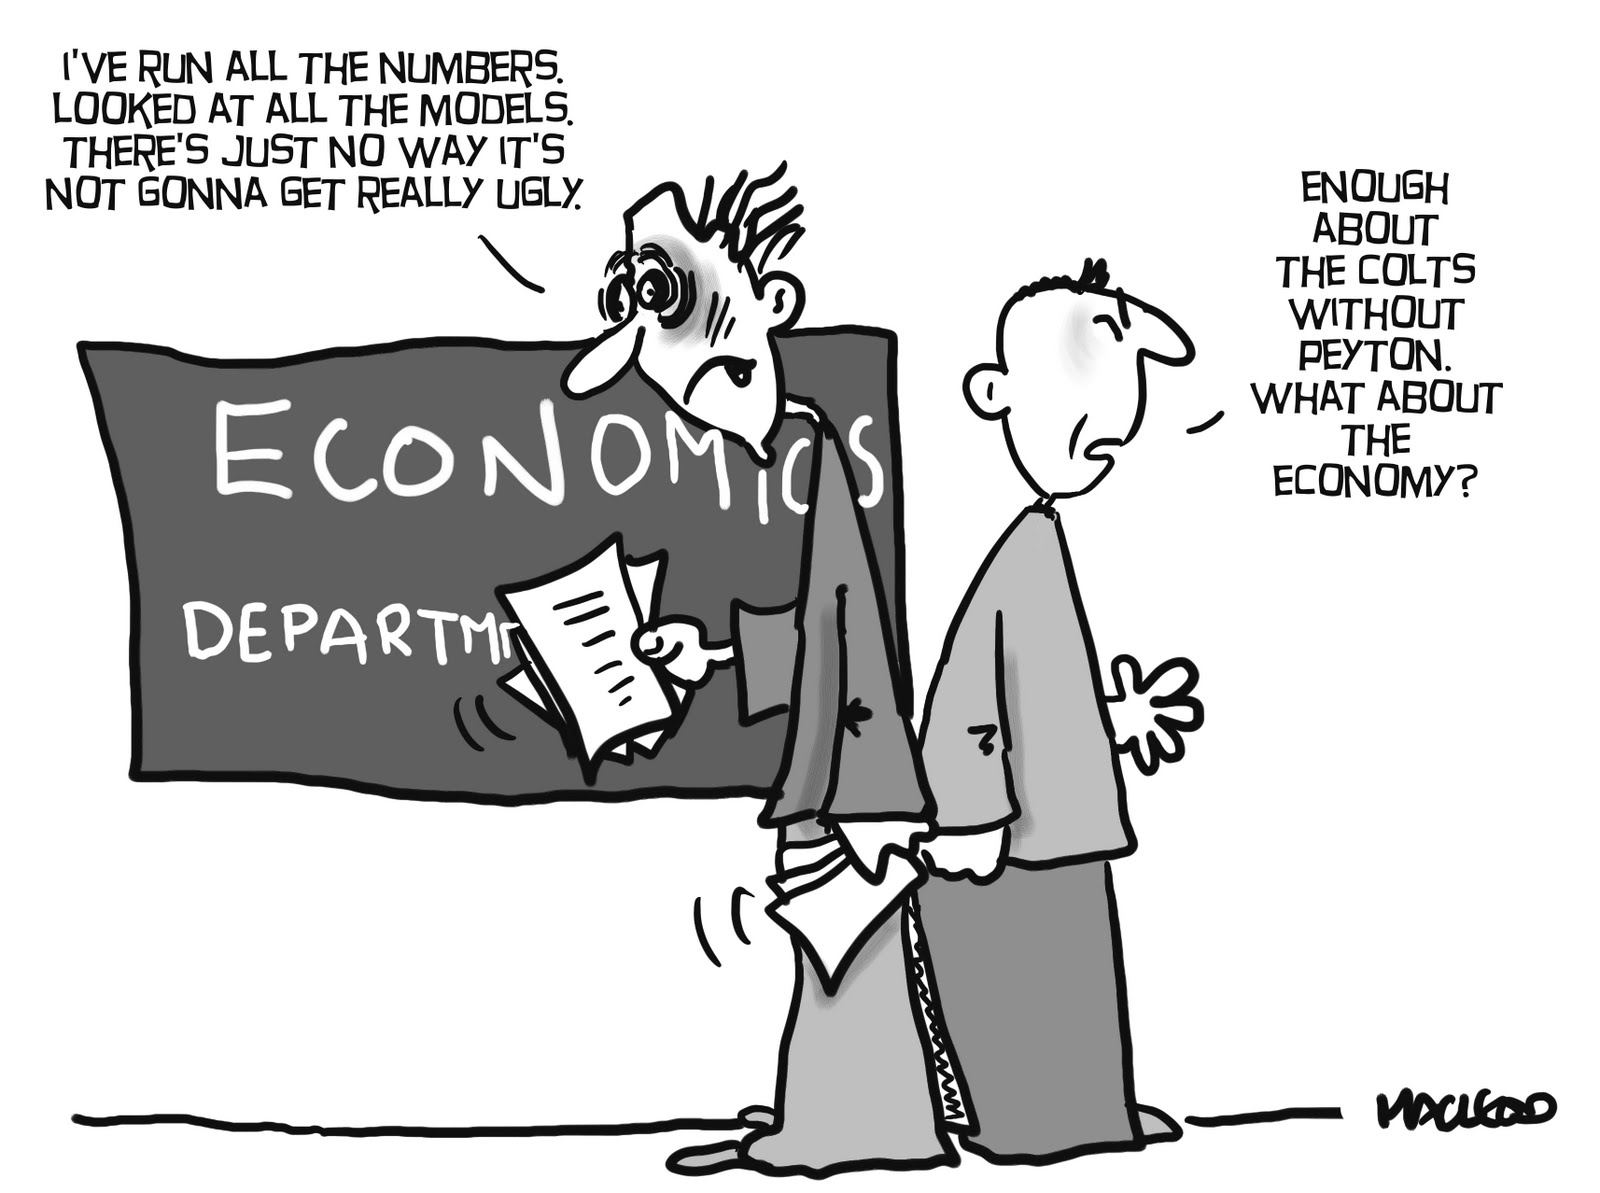 I'VE RUN ALL THE NUMBERS.
LOOKED AT ALL THE MODELS.
THERE'S JUST NO WAY IT'S
NOT GONNA GET REALLY UGLY.
ENOUGH
ABOUT
THE COLTS
WITHOUT
PEYTON.
WHAT ABOUT
THE
ECONOMY?
ECONOMICS
DEPARTM
MACLEOD